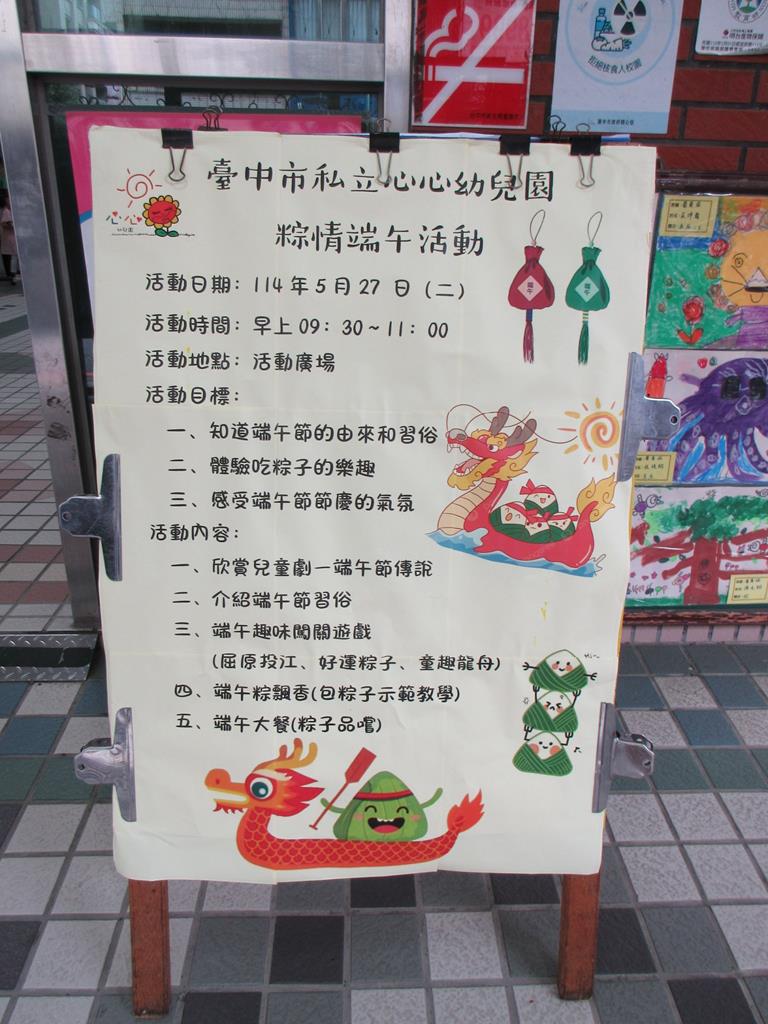 拒絕核食入校園
臺中市私立心心幼兒園
心心
幼兒園
粽情端午活動
端午
端午
活動日期：114 年 5 月 27 日（二）
活動時間：早上 09：30～11：00
活動地點：活動廣場
活動目標：
一、知道端午節的由來和習俗
二、體驗吃粽子的樂趣
三、感受端午節節慶的氣氛
活動內容：
一、欣賞兒童劇—端午節傳說
二、介紹端午節習俗
三、端午趣味闖關遊戲
(屈原投江、好運粽子、童趣龍舟)
Hi~
四、端午粽飄香(包粽子示範教學)
五、端午大餐(粽子品嚐)